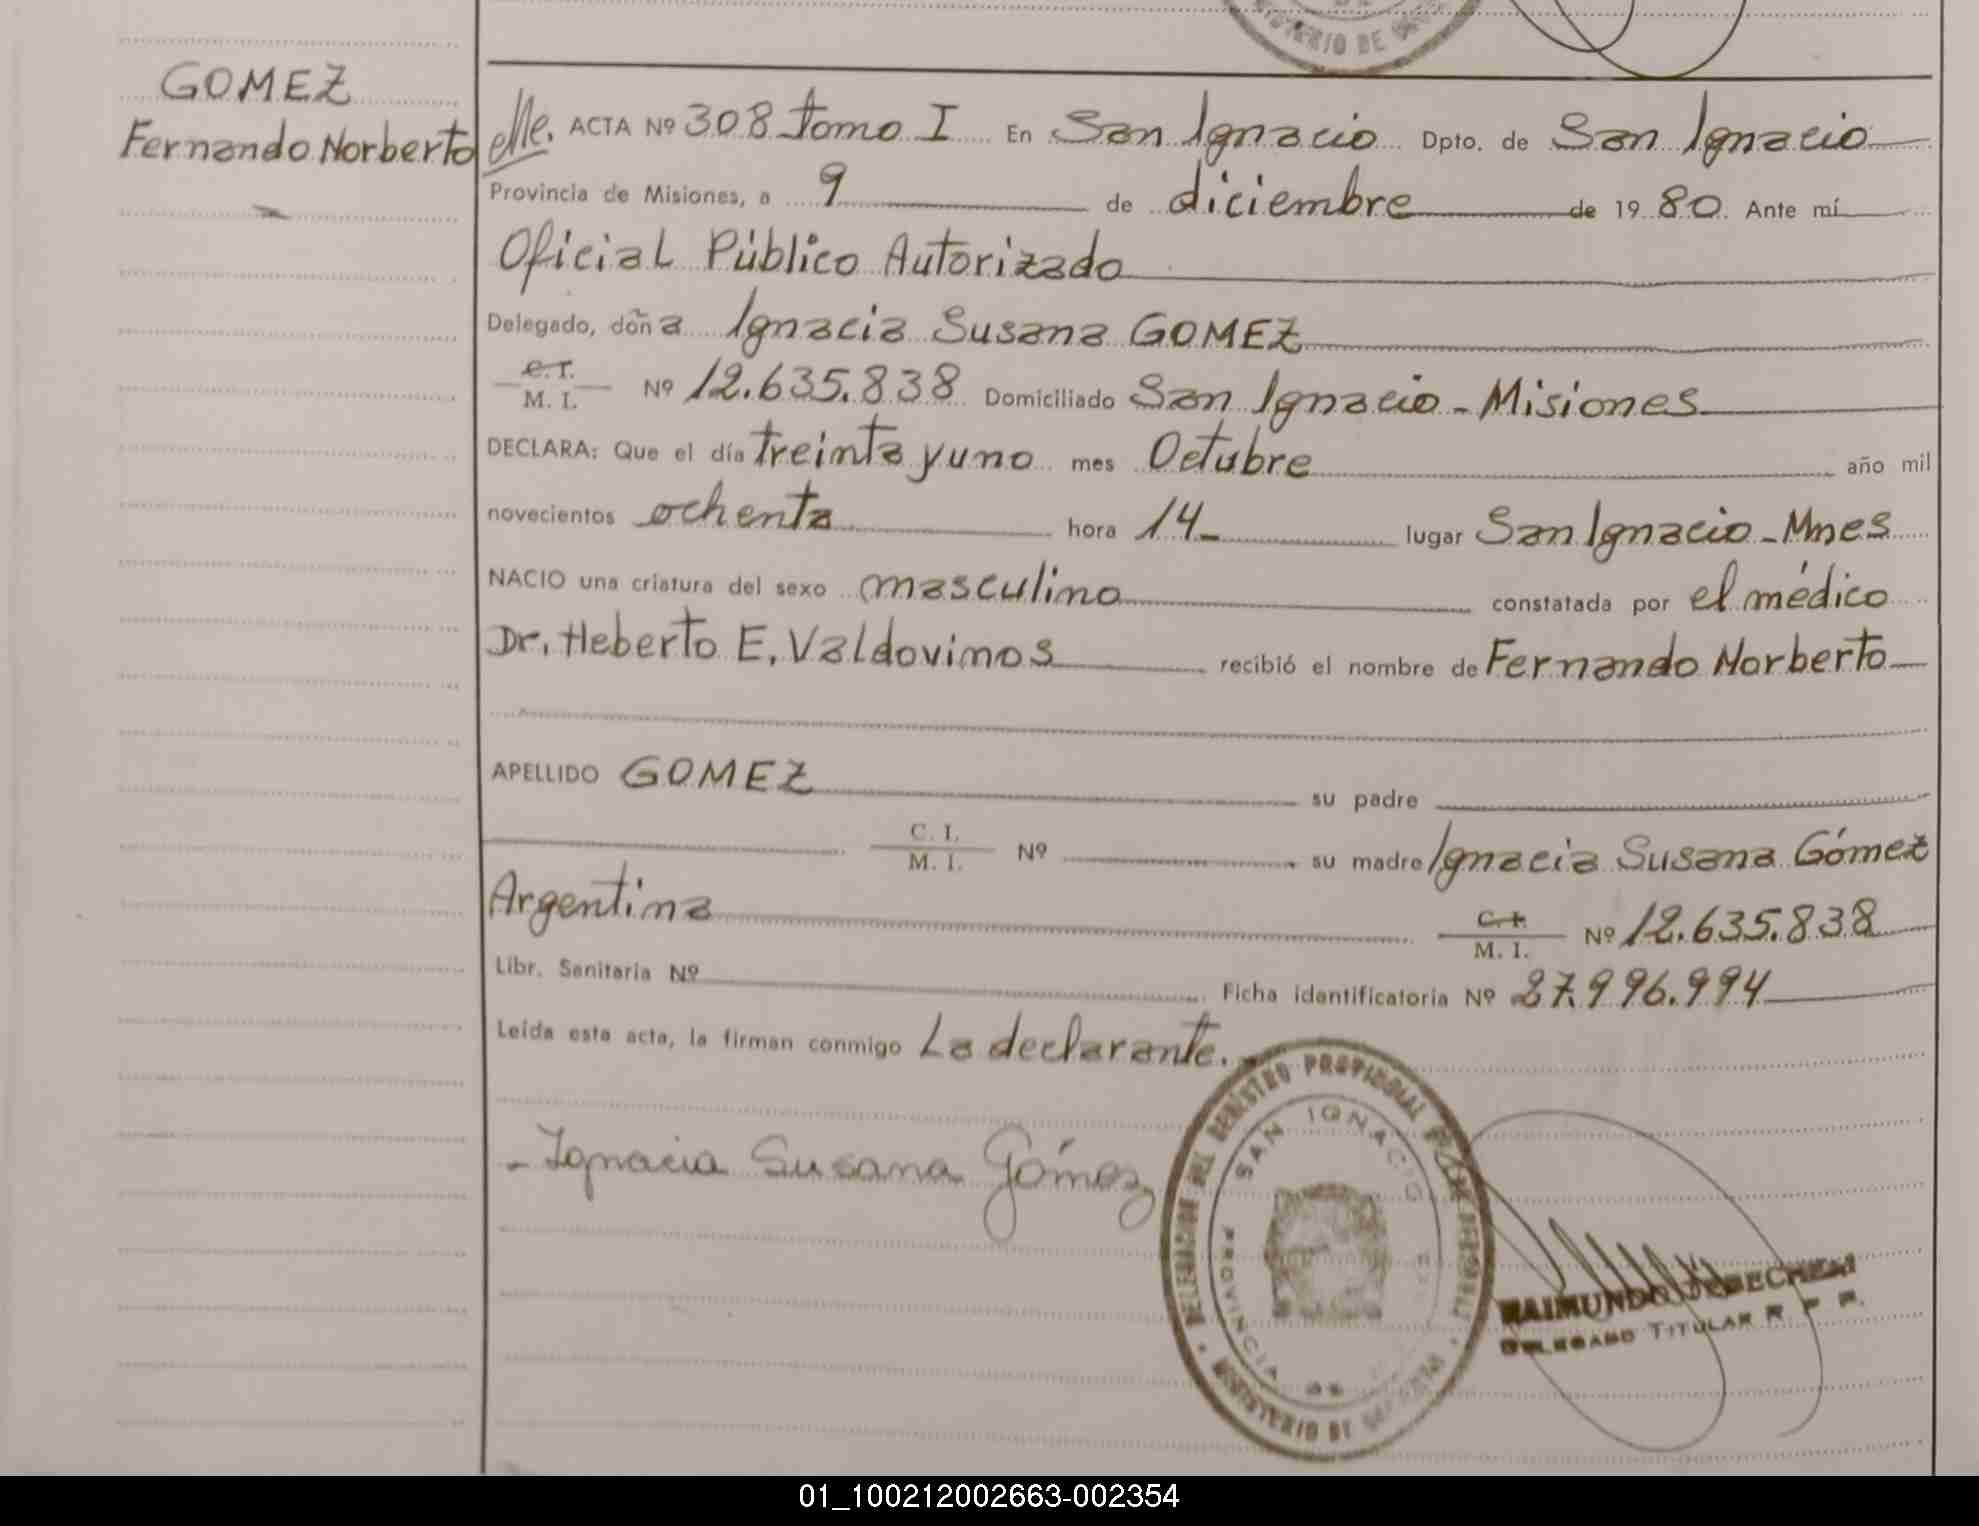 GOMEZ
Fernando Norberto
ACTA Nº 308 tomo I En San Ignacio Dpto. de San Ignacio
Provincia de Misiones, a 9 de diciembre de 1980. Ante mí
Oficial Público Autorizado
Delegado, doña Ignacia Susana GOMEZ
M. I. Nº 12.635.838 Domiciliado San Ignacio - Misiones
DECLARA: Que el día treinta y uno mes Octubre año mil
novecientos ochenta hora 14 lugar San Ignacio - Mnes
NACIO una criatura del sexo masculino constatada por el médico
Dr. Heberto E. Valdovinos recibió el nombre de Fernando Norberto
APELLIDO GOMEZ su padre
C. I.
M. I. Nº su madre Ignacia Susana Gómez
Argentina C. I.
M. I. Nº 12.635.838
Libr. Sanitaria Nº Ficha identificatoria Nº 27.996.994
Leída esta acta, la firman conmigo La declarante.
- Ignacia Susana Gómez
DEL REGISTRO PROVINCIAL
SAN IGNACIO
PROVINCIA DE
RAIMUNDO
DELEGADO TITULAR R. P. P.
01_100212002663-002354